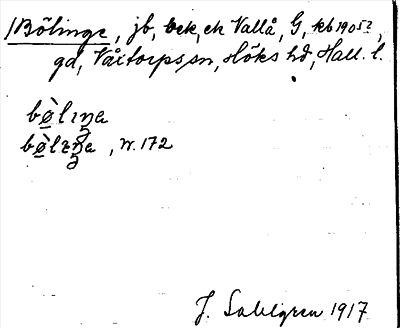 /Bölinge, jb, bek, ek Vallå, G, kb 1905?,
gd, Våxtorps sn, Höks hd, Hall. l.
bø̀lıŋa
bø̀lɛŋa, n. 172
J. Sahlgren 1917